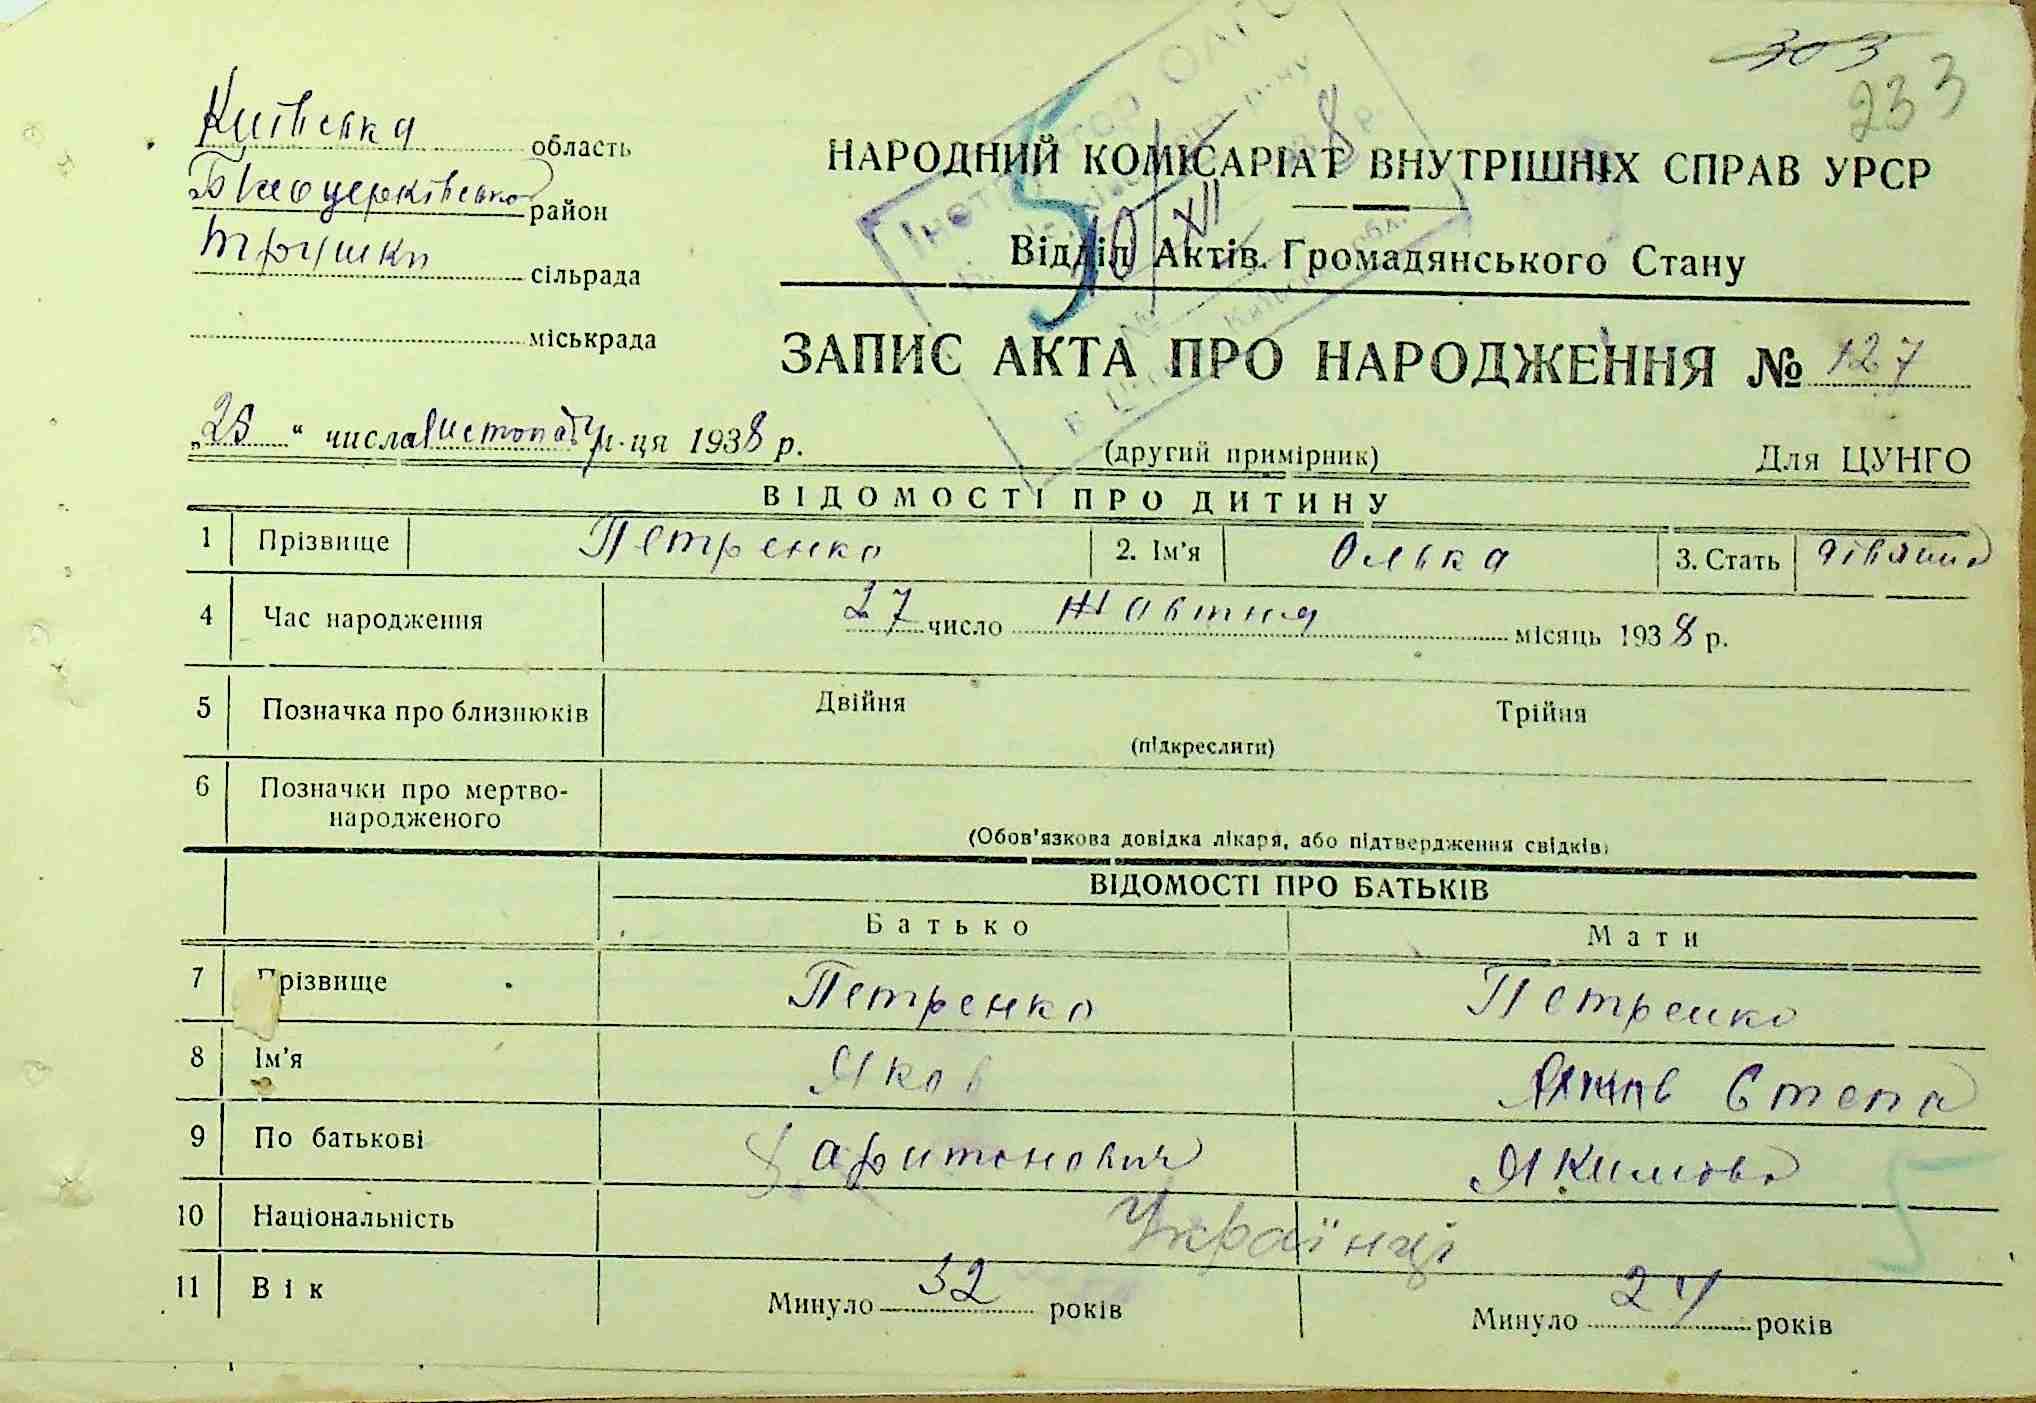 303
233
Київська область
Білоцерківсько район
Трушки сільрада
міськрада
НАРОДНИЙ КОМІСАРІАТ ВНУТРІШНІХ СПРАВ УРСР
Відділ Актів Громадянського Стану
5 10/XII 8
ЗАПИС АКТА ПРО НАРОДЖЕННЯ № 127
„28“ числа листопаду м-ця 1938 р.
(другий примірник)
Для ЦУНГО
ВІДОМОСТІ ПРО ДИТИНУ
1 Прізвище Петренко 2. Ім'я Олька 3. Стать дівчина
4 Час народження 27 число жовтня місяць 1938 р.
5 Позначка про близнюків Двійня Трійня
(підкреслити)
6 Позначки про мертво-
народженого
(Обов'язкова довідка лікаря, або підтвердження свідків)
ВІДОМОСТІ ПРО БАТЬКІВ
Батько Мати
7 Прізвище Петренко Петренко
8 Ім'я Яков Степа
9 По батькові Харитонович Якимова
10 Національність Українці 5
11 Вік Минуло 32 років Минуло років